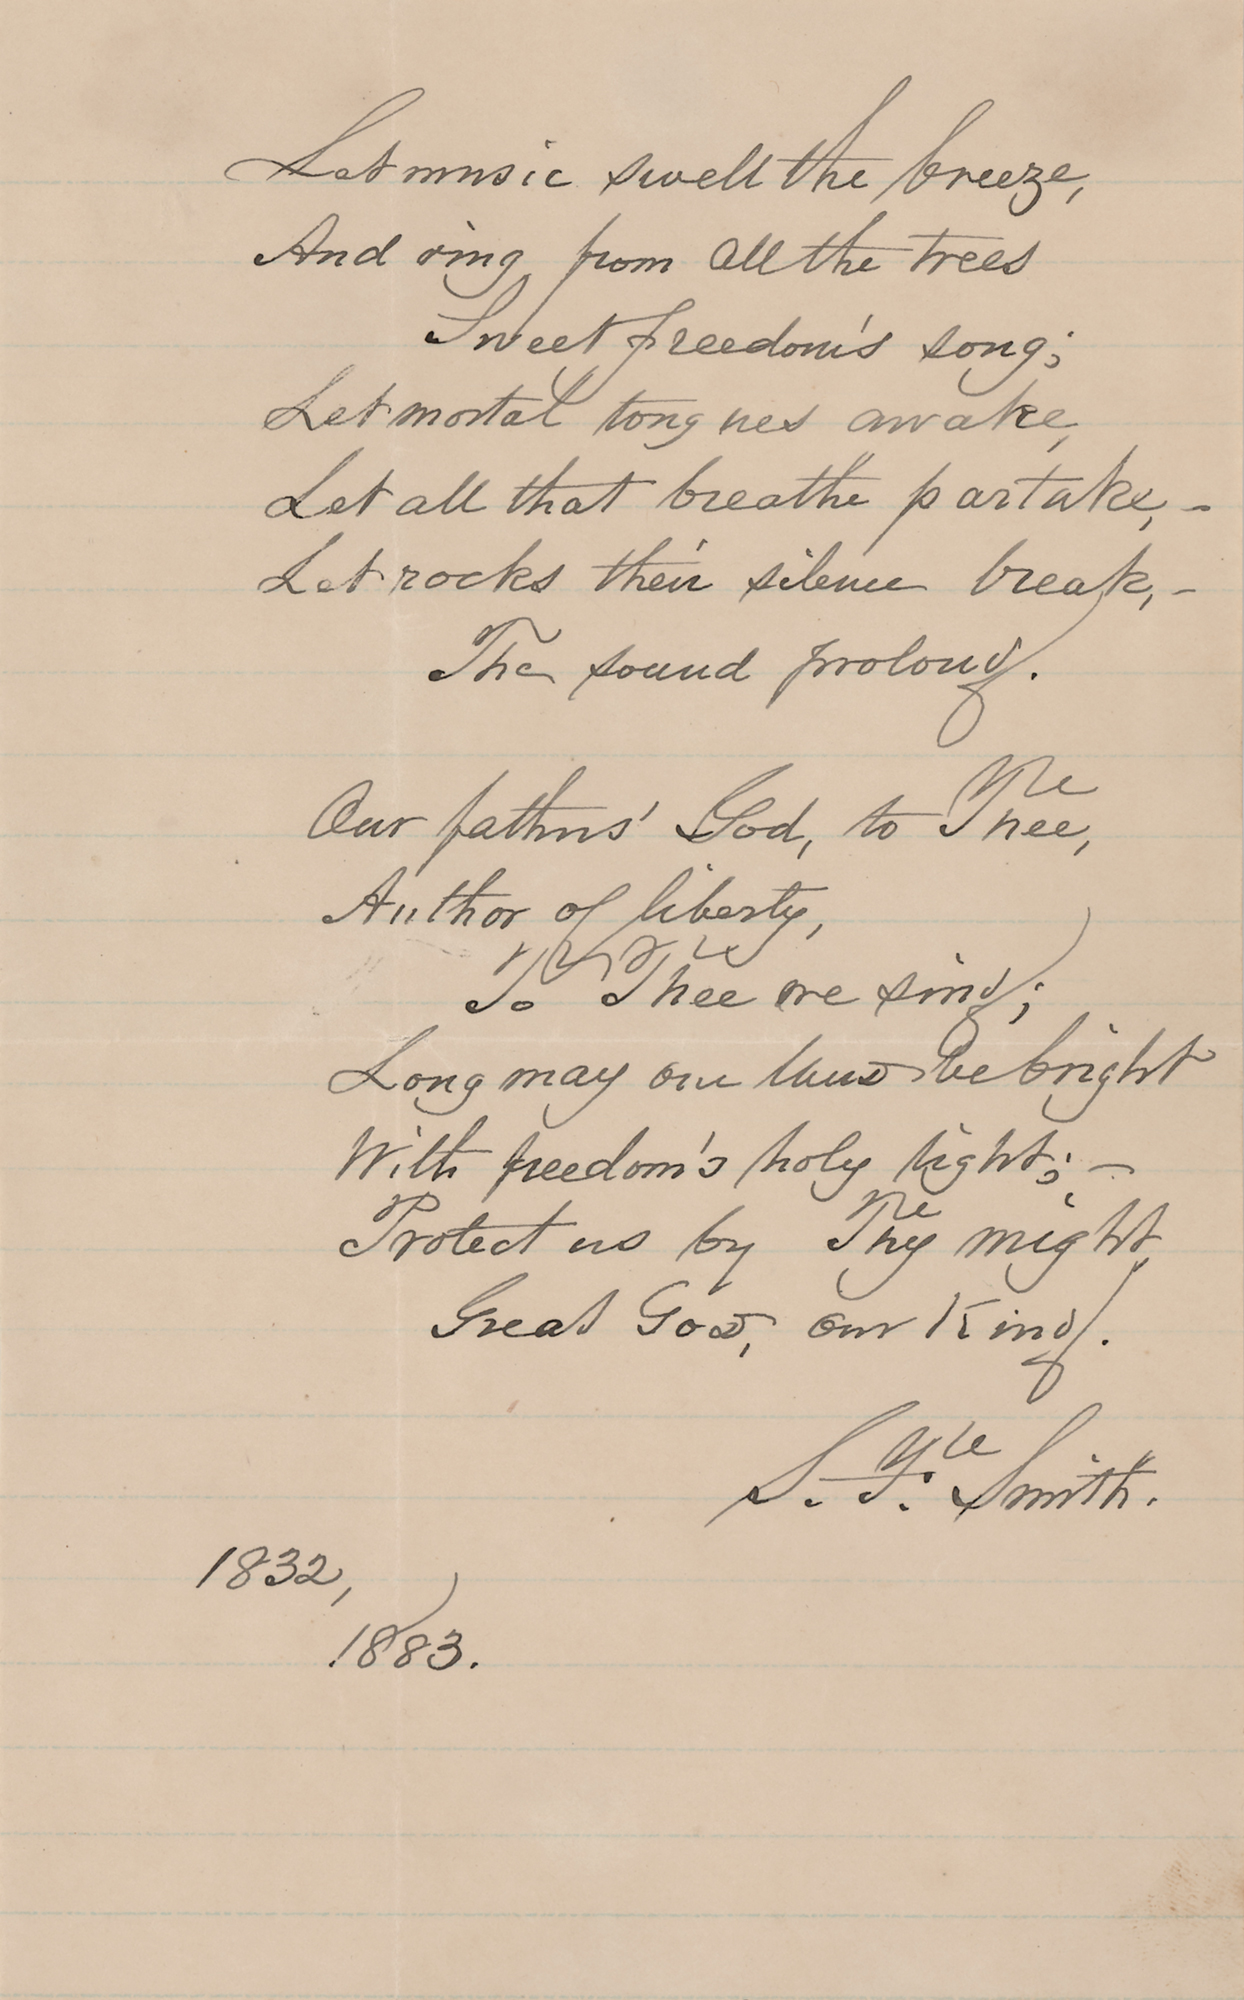 Let music swell the breeze,
And ring from all the trees
Sweet freedom's song;
Let mortal tongues awake,
Let all that breathe partake, -
Let rocks their silence break, -
The sound prolong.
Our fathers' God, to Thee,
Author of liberty,
To Thee we sing;
Long may our land be bright
With freedom's holy light; -
Protect us by Thy might,
Great God, our King.
S. F. Smith.
1832,
1883.